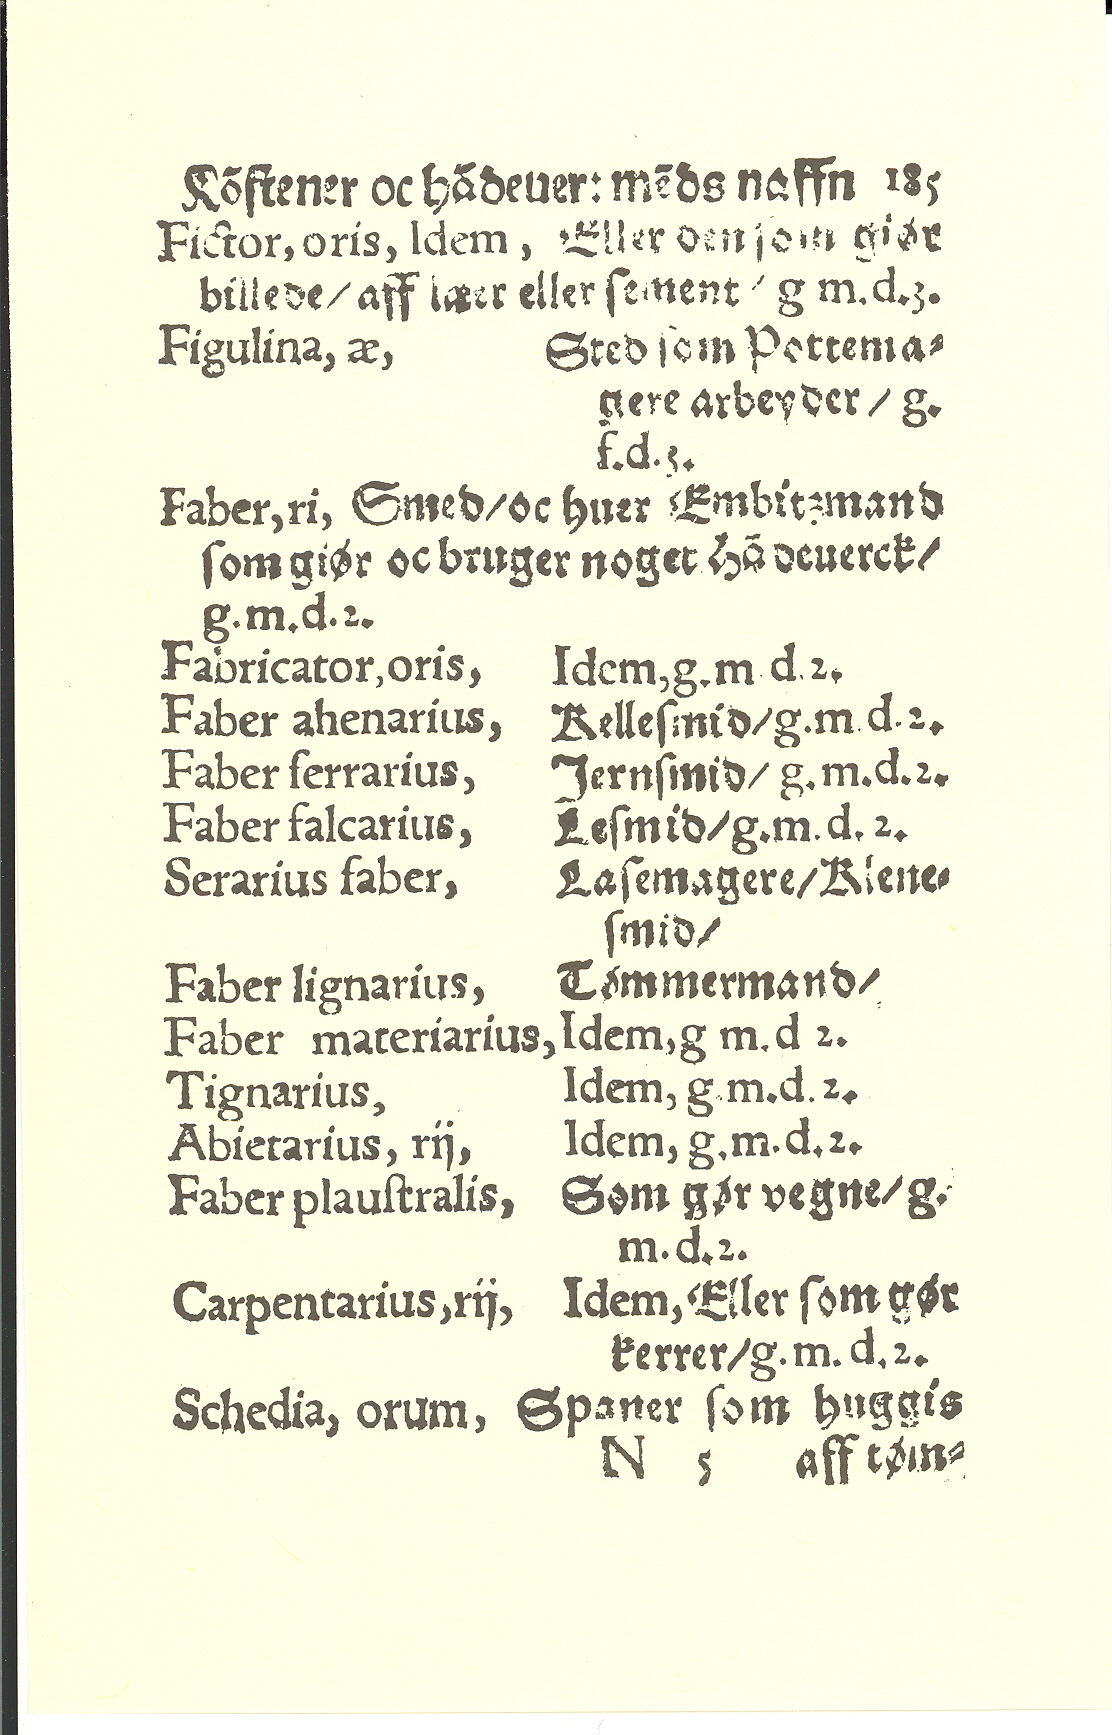 Kõstener oc hãdeuer: mẽds naffn 185
Fictor, oris, Idem, Eller den som giør
billede/ aff læer eller sement / g m.d.3.
Figulina, æ, Sted som Pottema⸗
gere arbeyder / g.
f.d.3.
Faber, ri, Smed/oc huer Embitzmand
som giør oc bruger noget Hãdeuerck/
g.m.d.2.
Fabricator, oris, Idem, g.m d.2.
Faber ahenarius, Kellesmid/g.m d.2.
Faber ferrarius, Jernsmid/ g.m.d.2.
Faber falcarius, Lesmid/g.m.d.2.
Serarius faber, Lasemagere/Klene⸗
smid/
Faber lignarius, Tømmermand/
Faber materiarius, Idem, g m.d 2.
Tignarius, Idem, g.m.d.2.
Abietarius, rij, Idem, g.m.d.2.
Faber plaustralis, Som gør vegne/ g.
m.d.2.
Carpentarius, rij, Idem, Eller som gør
kerrer/g.m.d.2.
Schedia, orum, Spaner som huggis
N 5 aff tøm⸗